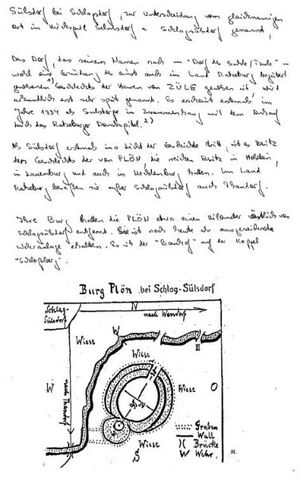 Sülsdorf bei Schlagsdorf, zur Unterscheidung vom gleichnamigen
Ort im Kirchspiel Selmsdorf = Schlagsülsdorf genannt,
Das Dorf, das seinem Namen nach - "Dorf des
wohl eine Gründung des einst auch im Land Ratzeburg begüterten
Geschlechts der Herren von ZÜLE gewesen ist, wird
urkundlich erst sehr spät genannt. Es erscheint erstmals im
Jahre 1334 als Sulstorpe in Zusammenhang mit dem Verkauf
durch das Ratzeburger Domkapitel. 2)
Als Sülsdorf erstmals ins Licht der Geschichte tritt, ist es Besitz
des Geschlechts der von PLÖN, die reichen Besitz in Holstein,
in Lauenburg und auch in Mecklenburg hatten. Im Land
Ratzeburg besaßen sie außer Schlagsülsdorf auch Thandorf.
Ihre Burg hatten die PLÖN etwa einen Kilometer von
Schlagsülsdorf entfernt. Sie ist noch heute als ausgezeichnete
erhalten. Es ist der auf der Koppel
Burg Plön bei Schlag-Sülsdorf
Schlag-
Sülsdorf
N
nach Wendorf
W
Wiese
Wiese
Wiese
W
nach Thandorf
O
Wiese
Wiese
S
Graben
Wall
Brücke
W Wehr.